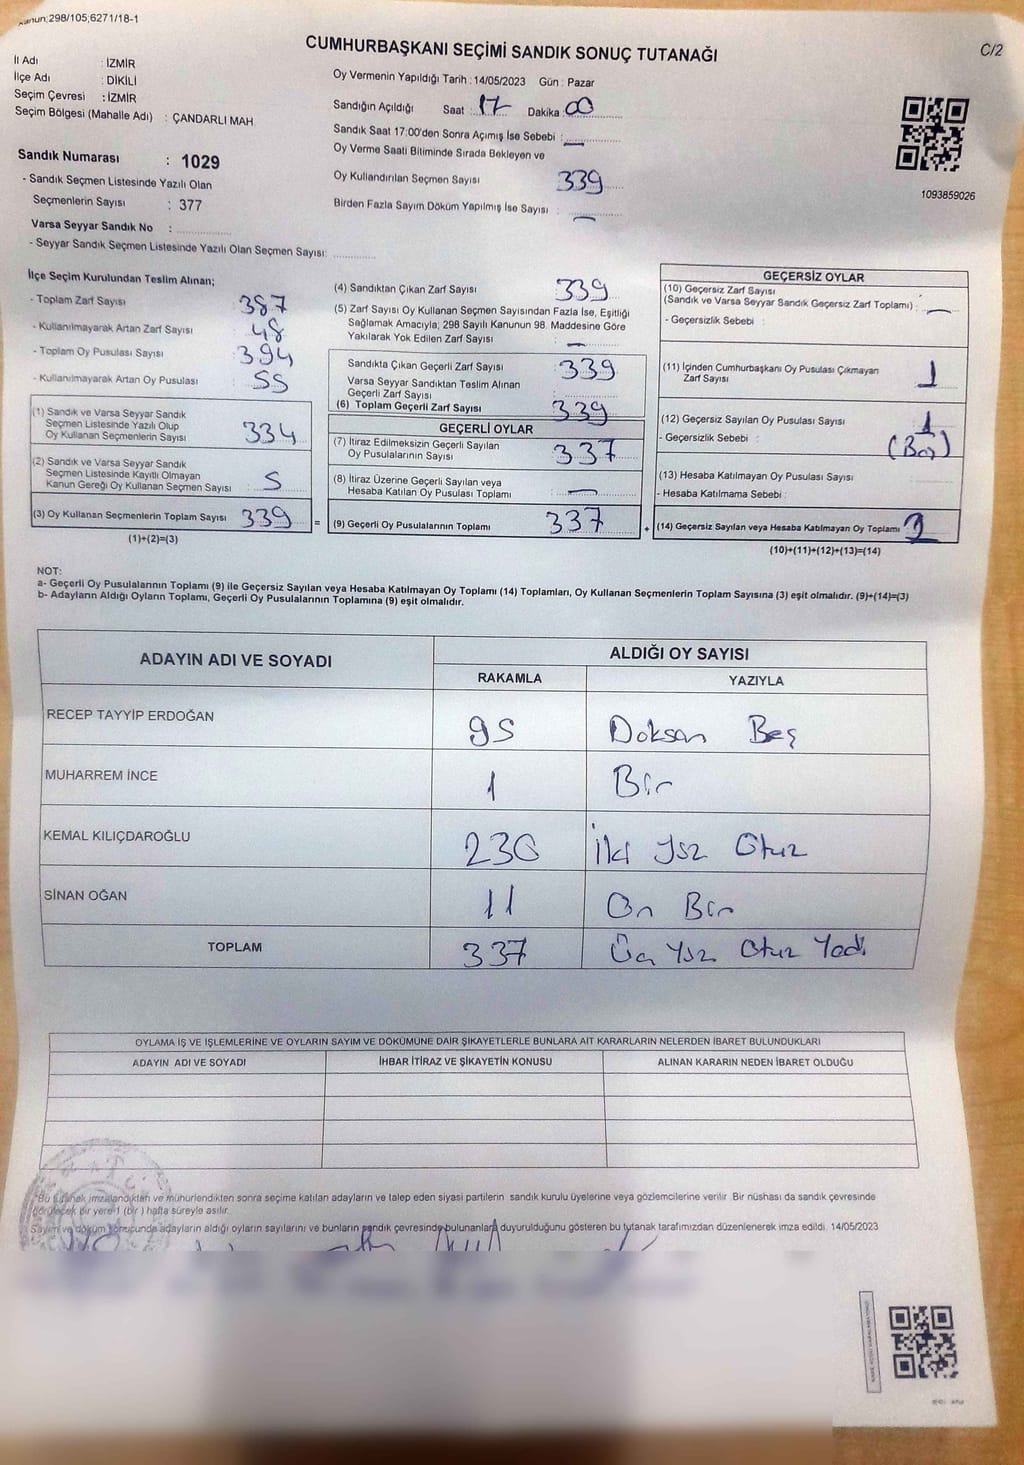 Kanun:298/105;6271/18-1
C/2
CUMHURBAŞKANI SEÇİMİ SANDIK SONUÇ TUTANAĞI
İl Adı : İZMİR
İlçe Adı : DİKİLİ
Seçim Çevresi : İZMİR
Seçim Bölgesi (Mahalle Adı) : ÇANDARLI MAH
Sandık Numarası : 1029
- Sandık Seçmen Listesinde Yazılı Olan
Seçmenlerin Sayısı : 377
Varsa Seyyar Sandık No :
- Seyyar Sandık Seçmen Listesinde Yazılı Olan Seçmen Sayısı:
Oy Vermenin Yapıldığı Tarih : 14/05/2023 Gün : Pazar
Sandığın Açıldığı Saat : 17 Dakika : 00
Sandık Saat 17:00'den Sonra Açımış İse Sebebi : —
Oy Verme Saati Bitiminde Sırada Bekleyen ve
Oy Kullandırılan Seçmen Sayısı 339
Birden Fazla Sayım Döküm Yapılmış İse Sayısı : —
1093859026
İlçe Seçim Kurulundan Teslim Alınan;
- Toplam Zarf Sayısı 387
- Kullanılmayarak Artan Zarf Sayısı : 48
- Toplam Oy Pusulası Sayısı : 394
- Kullanılmayarak Artan Oy Pusulası : 55
(1) Sandık ve Varsa Seyyar Sandık
Seçmen Listesinde Yazılı Olup
Oy Kullanan Seçmenlerin Sayısı 334
(2) Sandık ve Varsa Seyyar Sandık
Seçmen Listesinde Kayıtlı Olmayan
Kanun Gereği Oy Kullanan Seçmen Sayısı 5
(3) Oy Kullanan Seçmenlerin Toplam Sayısı 339 =
(1)+(2)=(3)
(4) Sandıktan Çıkan Zarf Sayısı 339
(5) Zarf Sayısı Oy Kullanan Seçmen Sayısından Fazla İse, Eşitliği
Sağlamak Amacıyla; 298 Sayılı Kanunun 98. Maddesine Göre
Yakılarak Yok Edilen Zarf Sayısı : —
Sandıkta Çıkan Geçerli Zarf Sayısı : 339
Varsa Seyyar Sandıktan Teslim Alınan
Geçerli Zarf Sayısı :
(6) Toplam Geçerli Zarf Sayısı 339
GEÇERLİ OYLAR
(7) İtiraz Edilmeksizin Geçerli Sayılan
Oy Pusulalarının Sayısı 337
(8) İtiraz Üzerine Geçerli Sayılan veya
Hesaba Katılan Oy Pusulası Toplamı —
(9) Geçerli Oy Pusulalarının Toplamı 337 +
GEÇERSİZ OYLAR
(10) Geçersiz Zarf Sayısı
(Sandık ve Varsa Seyyar Sandık Geçersiz Zarf Toplamı) : —
- Geçersizlik Sebebi :
(11) İçinden Cumhurbaşkanı Oy Pusulası Çıkmayan
Zarf Sayısı 1
(12) Geçersiz Sayılan Oy Pusulası Sayısı : 1
- Geçersizlik Sebebi : (Boş)
(13) Hesaba Katılmayan Oy Pusulası Sayısı :
- Hesaba Katılmama Sebebi :
(14) Geçersiz Sayılan veya Hesaba Katılmayan Oy Toplamı 2
(10)+(11)+(12)+(13)=(14)
NOT:
a- Geçerli Oy Pusulalarının Toplamı (9) ile Geçersiz Sayılan veya Hesaba Katılmayan Oy Toplamı (14) Toplamları, Oy Kullanan Seçmenlerin Toplam Sayısına (3) eşit olmalıdır. (9)+(14)=(3)
b- Adayların Aldığı Oyların Toplamı, Geçerli Oy Pusulalarının Toplamına (9) eşit olmalıdır.
ADAYIN ADI VE SOYADI ALDIĞI OY SAYISI
RAKAMLA YAZIYLA
RECEP TAYYİP ERDOĞAN 95 Doksan Beş
MUHARREM İNCE 1 Bir
KEMAL KILIÇDAROĞLU 230 İki Yüz Otuz
SİNAN OĞAN 11 On Bir
TOPLAM 337 Üç Yüz Otuz Yedi
OYLAMA İŞ VE İŞLEMLERİNE VE OYLARIN SAYIM VE DÖKÜMÜNE DAİR ŞİKAYETLERLE BUNLARA AİT KARARLARIN NELERDEN İBARET BULUNDUKLARI
ADAYIN ADI VE SOYADI İHBAR İTİRAZ VE ŞİKAYETİN KONUSU ALINAN KARARIN NEDEN İBARET OLDUĞU
Bu tutanak imzalandıktan ve mühürlendikten sonra seçime katılan adayların ve talep eden siyasi partilerin sandık kurulu üyelerine veya gözlemcilerine verilir. Bir nüshası da sandık çevresinde
görülecek bir yere 1 (bir) hafta süreyle asılır.
Sayım ve döküm sonucunda adayların aldığı oyların sayılarını ve bunların sandık çevresinde bulunanlara duyurulduğunu gösteren bu tutanak tarafımızdan düzenlenerek imza edildi. 14/05/2023